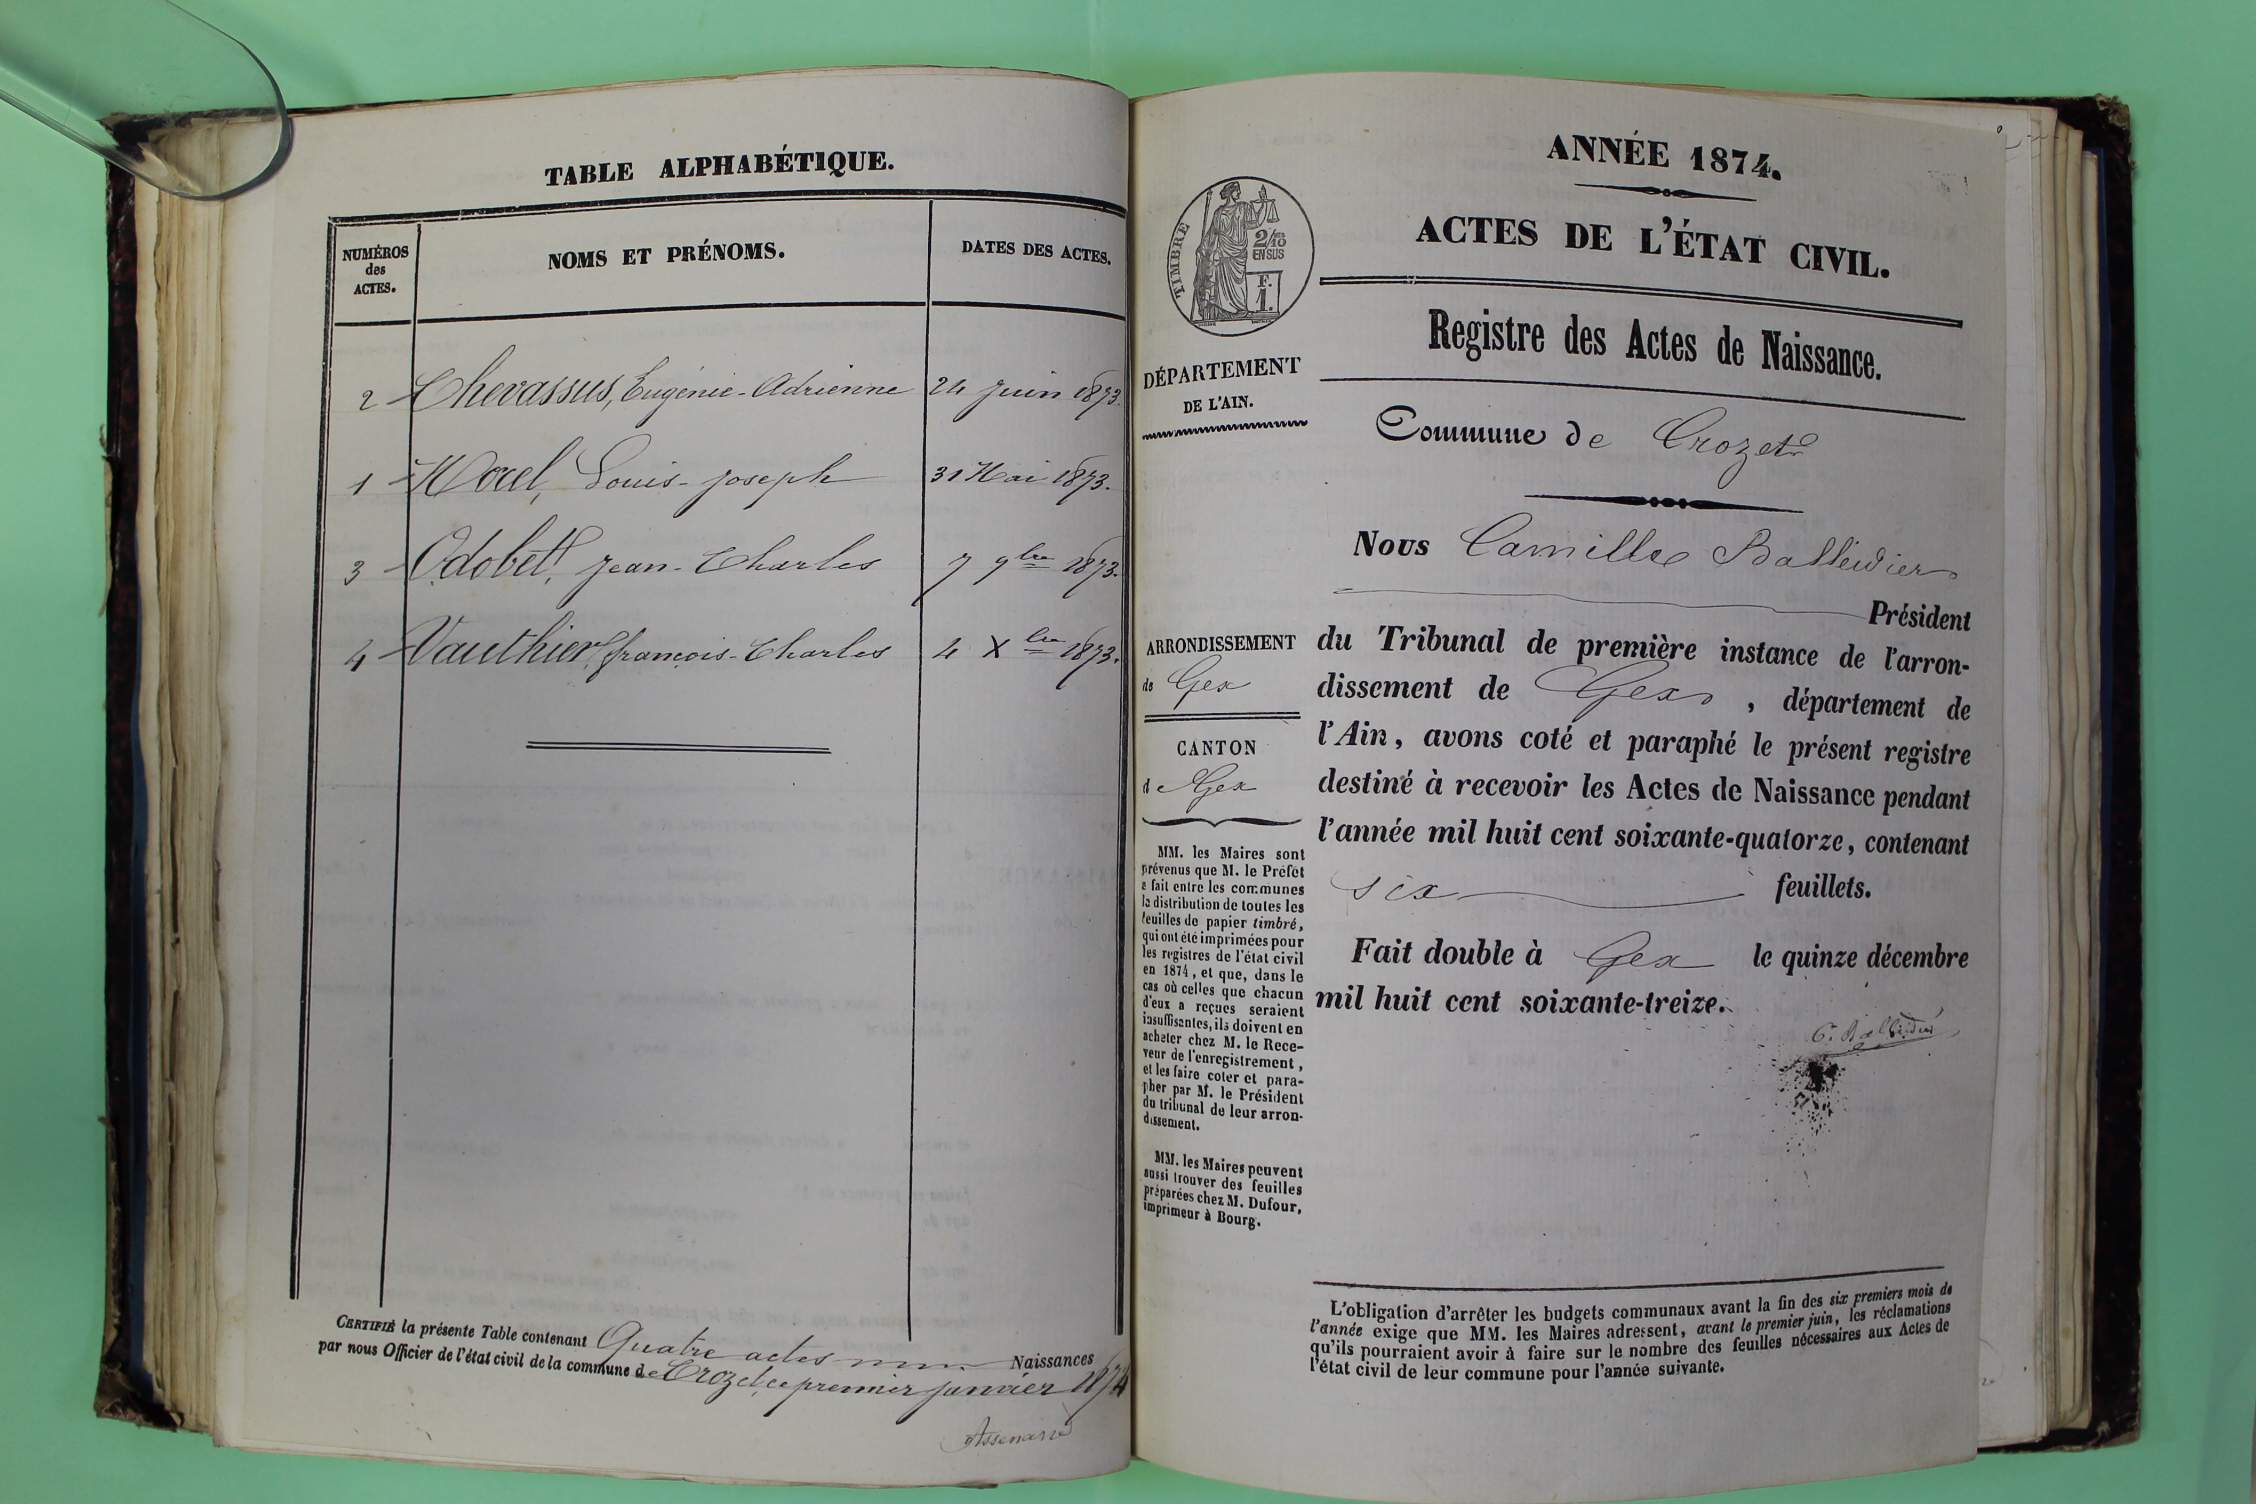 TABLE ALPHABÉTIQUE.
NUMÉROS
des
ACTES.
NOMS ET PRÉNOMS.
DATES DES ACTES.
2 Chevassus, Eugénie-Adrienne 24 juin 1873.
1 Morel, Louis-joseph 31 Mai 1873.
3 Odobet, jean-Charles 7 9bre 1873.
4 Vauthier, françois-Charles 4 Xbre 1873.
CERTIFIÉ la présente Table contenant Quatre actes Naissances
par nous Officier de l'état civil de la commune de Crozet, ce premier janvier 1874
ANNÉE 1874.
ACTES DE L'ÉTAT CIVIL.
TIMBRE
2/10
EN SUS
F.
1.
Registre des Actes de Naissance.
DÉPARTEMENT
DE L'AIN.
Commune de Crozet
Nous Camille Balleidier
Président
ARRONDISSEMENT
de Gex
CANTON
de Gex
du Tribunal de première instance de l'arron-
dissement de Gex, département de
l'Ain, avons coté et paraphé le présent registre
destiné à recevoir les Actes de Naissance pendant
l'année mil huit cent soixante-quatorze, contenant
six feuillets.
Fait double à Gex le quinze décembre
mil huit cent soixante-treize.
C. Balleidier
MM. les Maires sont
prévenus que M. le Préfet
a fait entre les communes
la distribution de toutes les
feuilles de papier timbré,
qui ont été imprimées pour
les registres de l'état civil
en 1874, et que, dans le
cas où celles que chacun
d'eux a reçues seraient
insuffisantes, ils doivent en
acheter chez M. le Rece-
veur de l'enregistrement,
et les faire coter et para-
pher par M. le Président
du tribunal de leur arron-
dissement.
MM. les Maires peuvent
aussi trouver des feuilles
préparées chez M. Dufour,
imprimeur à Bourg.
L'obligation d'arrêter les budgets communaux avant la fin des six premiers mois de
l'année exige que MM. les Maires adressent, avant le premier juin, les réclamations
qu'ils pourraient avoir à faire sur le nombre des feuilles nécessaires aux Actes de
l'état civil de leur commune pour l'année suivante.